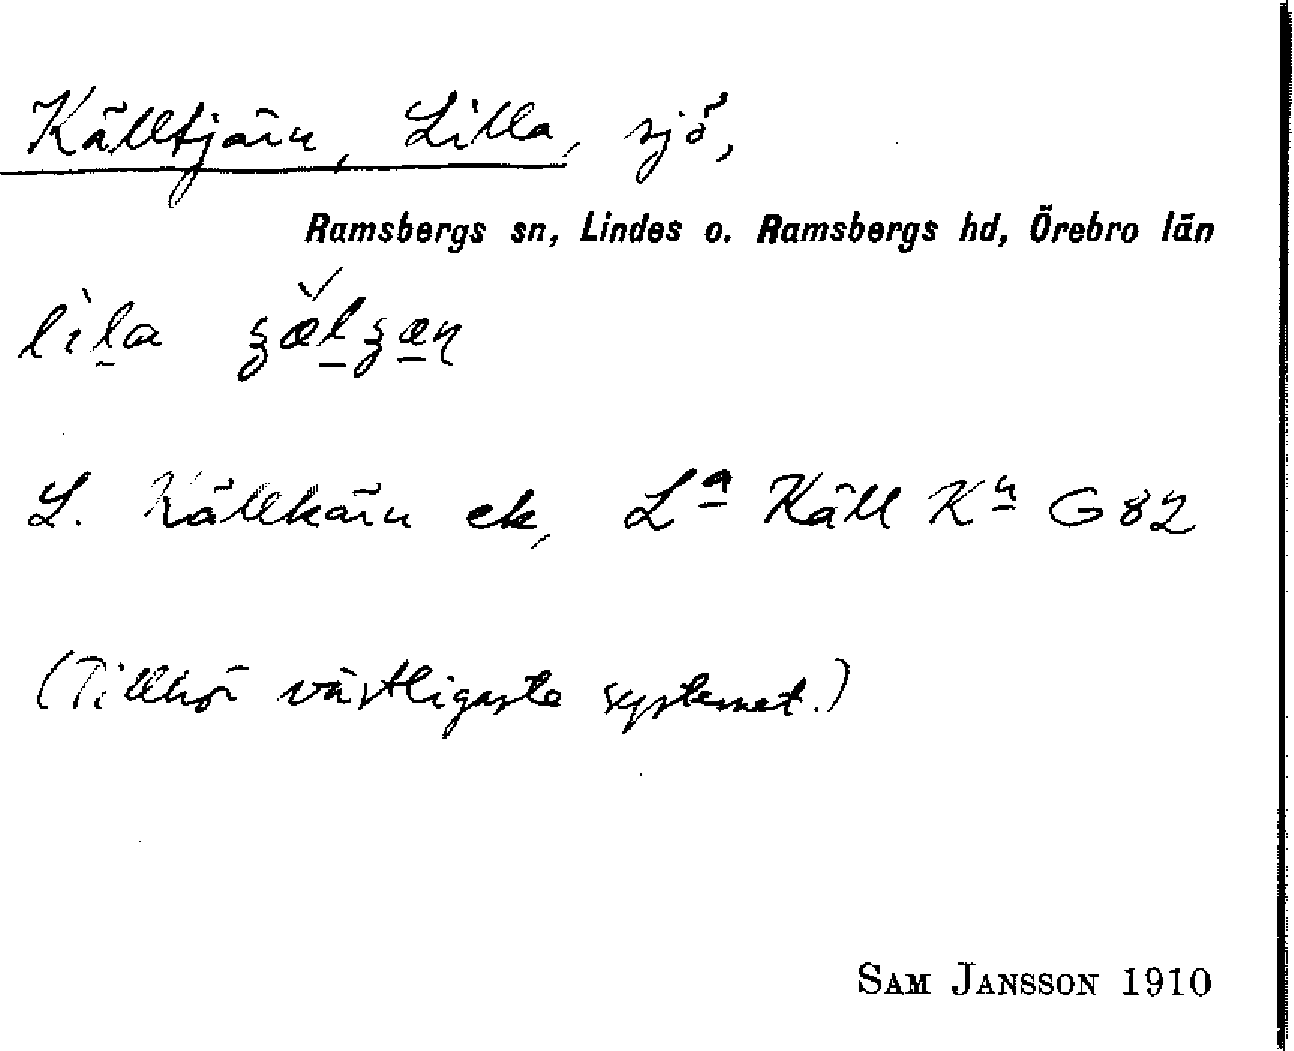 Källtjärn, Lilla, sjö,
Ramsbergs sn, Lindes o. Ramsbergs hd, Örebro län
lìla ʒæ̌lʒæn
L. Källkärn ek, Lª Käll Kⁿ G 82
(Tillhör västligaste systemet.)
SAM JANSSON 1910